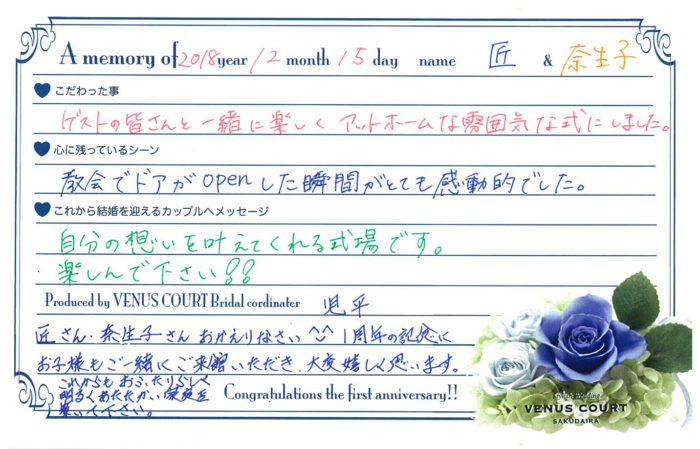 A memory of 2018 year 12 month 15 day name 匠 & 奈生子
こだわった事
ゲストの皆さんと一緒に楽しくアットホームな雰囲気な式にしました。
心に残っているシーン
教会でドアがopenした瞬間がとても感動的でした。
これから結婚を迎えるカップルへメッセージ
自分の想いを叶えてくれる式場です。
楽しんで下さい!!
Produced by VENUS COURT Bridal cordinater 児平
匠さん・奈生子さん おかえりなさい^^ 1周年の記念に
お子様もご一緒にご来館いただき、大変嬉しく思います。
これからもおふたりらしく
明るくあたたかい家庭を
築いて下さい。
Congratulations the first anniversary!!
VENUS COURT
SAKUDAIRA